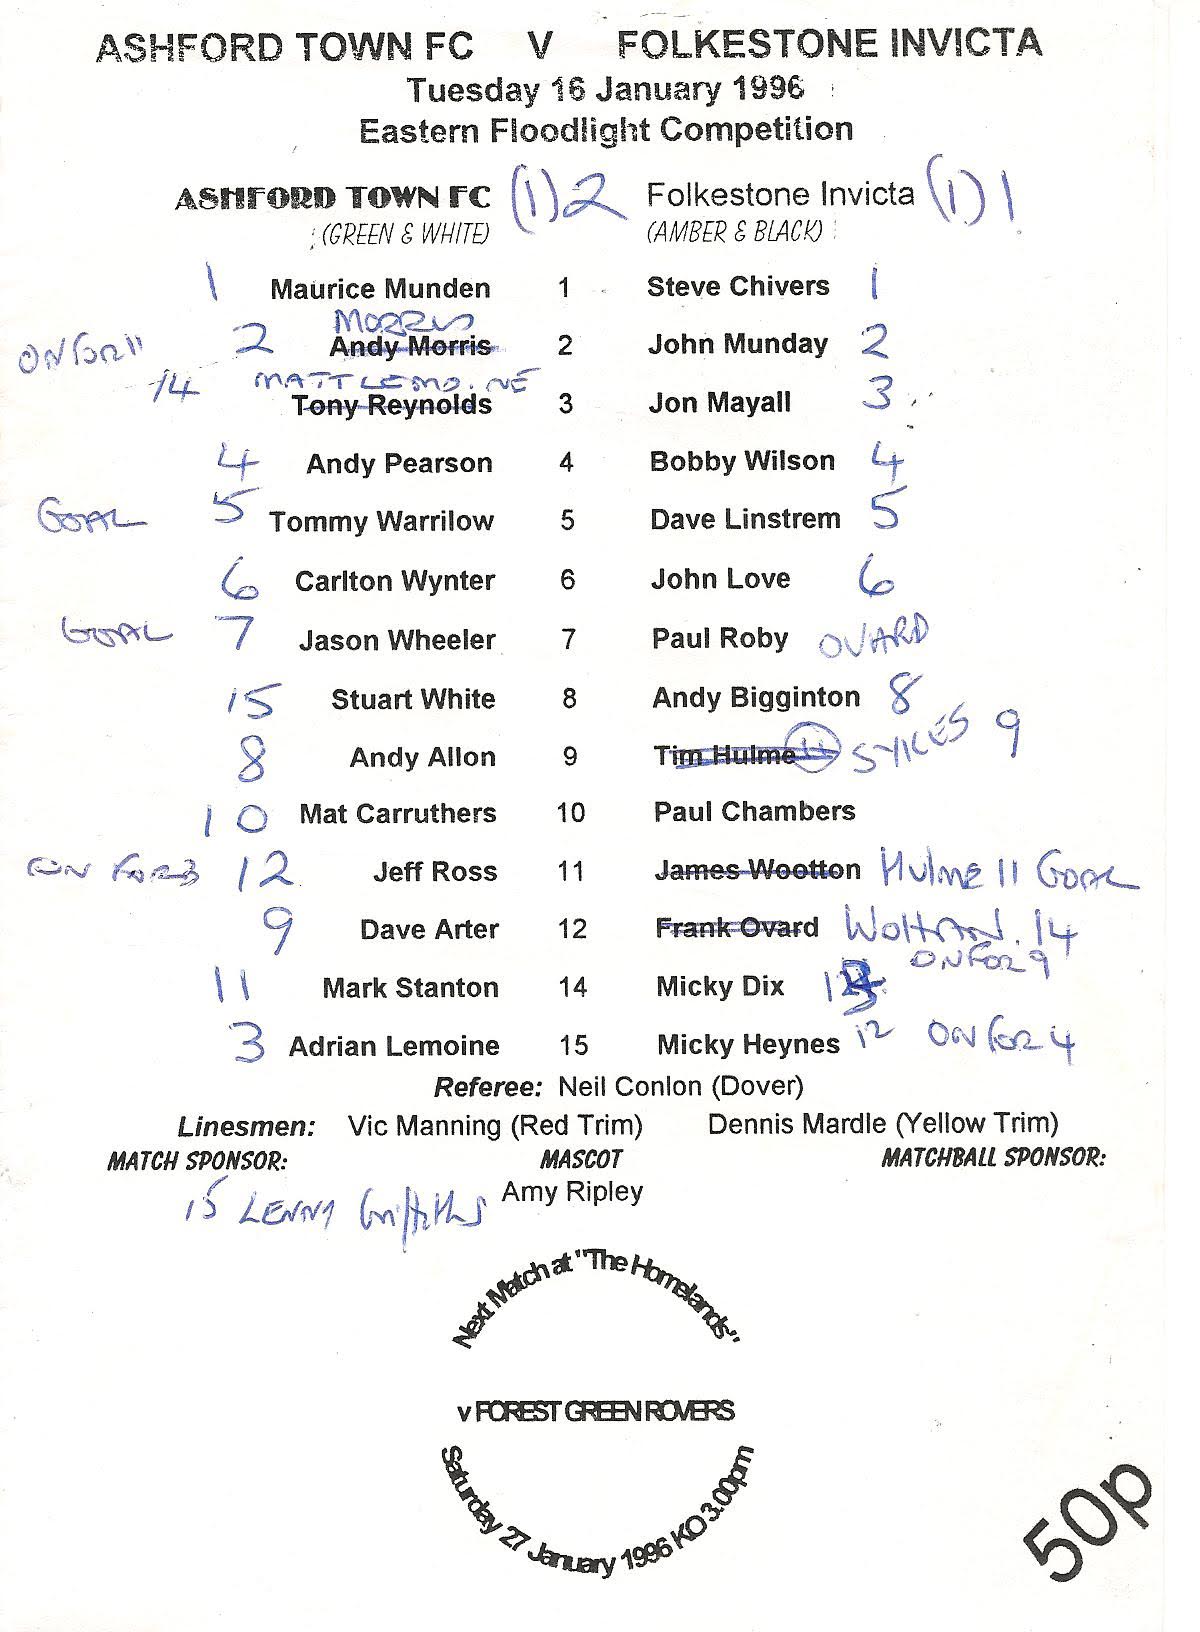 ASHFORD TOWN FC V FOLKESTONE INVICTA
Tuesday 16 January 1996
Eastern Floodlight Competition
ASHFORD TOWN FC (1) 2 Folkestone Invicta (1) 1
(GREEN & WHITE) (AMBER & BLACK)
1 Maurice Munden 1 Steve Chivers 1
MORRIS
ON FOR 11 2 Andy Morris 2 John Munday 2
14 MATT LEMOINE
Tony Reynolds 3 Jon Mayall 3
4 Andy Pearson 4 Bobby Wilson 4
GOAL 5 Tommy Warrilow 5 Dave Linstrem 5
6 Carlton Wynter 6 John Love 6
GOAL 7 Jason Wheeler 7 Paul Roby OVARD
15 Stuart White 8 Andy Bigginton 8
8 Andy Allon 9 Tim Hulme 11 SYKES 9
10 Mat Carruthers 10 Paul Chambers
ON FOR 3 12 Jeff Ross 11 James Wootton Hulme 11 GOAL
9 Dave Arter 12 Frank Ovard 14
ON FOR 9
11 Mark Stanton 14 Micky Dix
3 Adrian Lemoine 15 Micky Heynes 12 ON FOR 4
Referee: Neil Conlon (Dover)
Linesmen: Vic Manning (Red Trim) Dennis Mardle (Yellow Trim)
MATCH SPONSOR: MASCOT MATCHBALL SPONSOR:
Amy Ripley
15 LENNY Griffiths
Next Match at "The Homelands"
v FOREST GREEN ROVERS
Saturday 27 January 1996 KO 3.00pm
50p